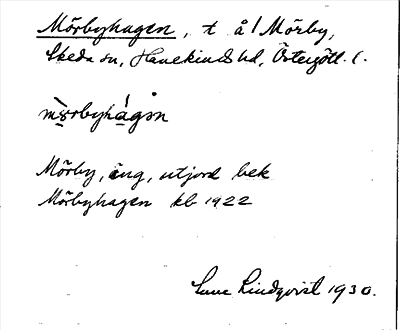 Mörbyhagen, t å/ Mörby,
Skeda sn, Hanekinds hd, Östergötl. l.
mɷ̀rbyhágən
Mörby, äng, utjord bek
Mörbyhagen kb 1922
Sune Lindqvist 1930.